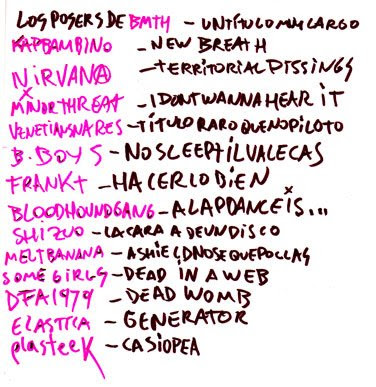 LOS POSERS DE BMTH - UN TÍTULO MUY LARGO
KAP BAMBINO - NEW BREATH
NiRVANA - TERRITORIAL PISSINGS
MINOR THREAT - I DONT WANNA HEAR IT
VENETIAN SNARES - TÍTULO RARO QUE NO PILOTO
B. BOYS - NO SLEEP TIL VALECAS
FRANKT - HACERLO BIEN
BLOODHOUND GANG - A LAPDANCE IS...
SHIZUO - LA CARA A DE UN DISCO
MELT BANANA - A SHIELD NO SE QUE POLLAS
SOME GIRLS - DEAD IN A WEB
DFA1979 - DEAD WOMB
ELASTICA - GENERATOR
plasteek - CASIOPEA